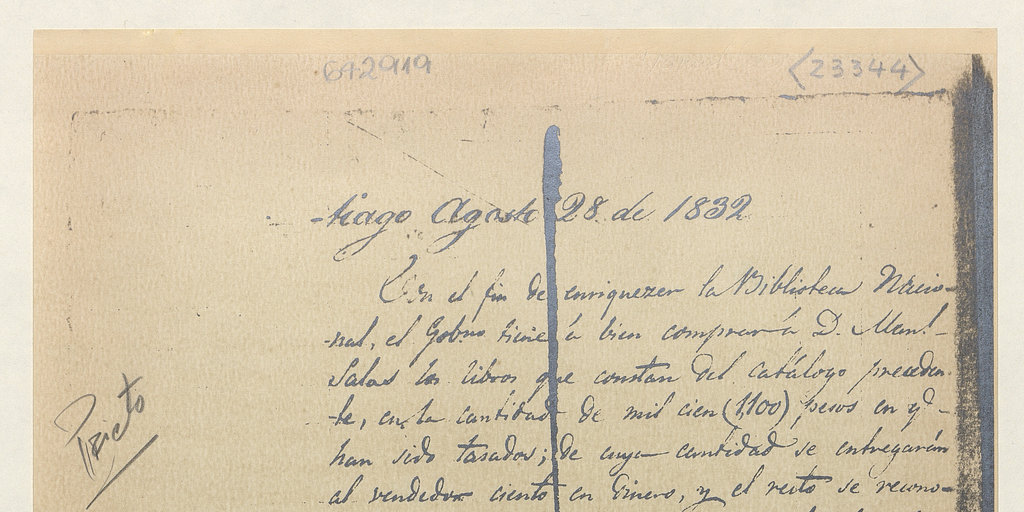 642919
<23344>
-tiago Agosto 28 de 1832
Con el fin de enriquezer la Biblioteca Nacio-
-nal, el Gobno tiene á bien comprar á D. Manl-
Salas los libros que constan del catálogo preceden-
-te, en la cantidad de mil cien (1,100) pesos en qe-
han sido tasados; de cuya cantidad se entregarán
al vendedor ciento en dinero, y el resto se recono-
Prieto